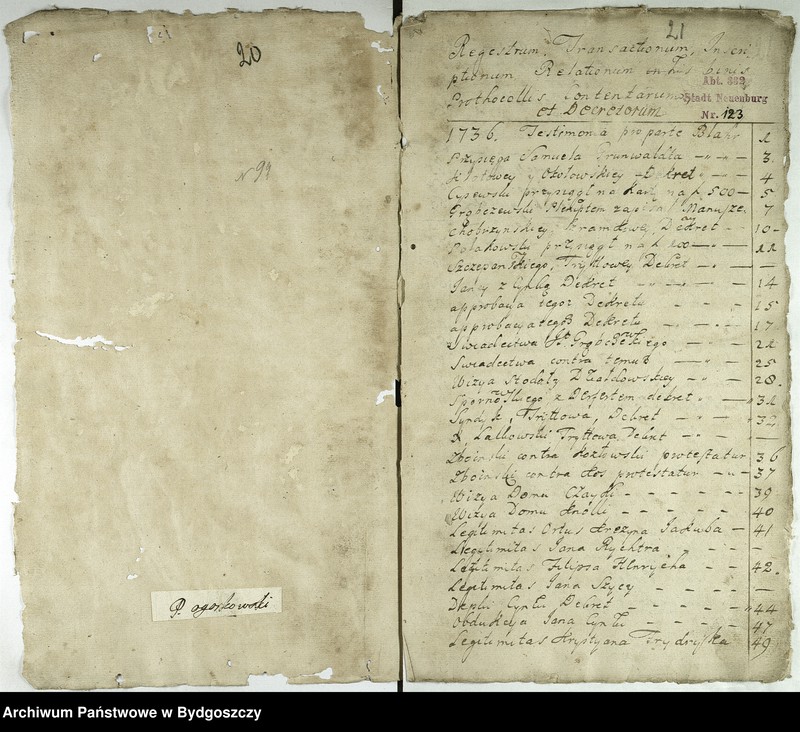 20
N 94
P. agonkowski
21
Regestrum, Transactionum, Inscri
ptionum Relationum in his binis
Prothocollis Contentarum,
et Decretorum
Abt. 332
Stadt Neuenburg
Nr. 123
1736. Testimonia pro parte 2
Przysięga Samuela Grunwalda — 3
y Okołowskiey Dekret — 4
Cysewski przysiągł na kartę na f. 500 — 5
Grąbczewski zapisał 7
Chobrzynskiey, Dekret — 10
Polakowski przysiągł na f. 100 — 11
Szczepanskiego, Tryttowey Dekret — —
z Cyntlą Dekret — 14
approbacya tegoż Dekretu — 15
approbacya tegoż Dekretu — 17
Swiadectwa P. Grąbczewskiego — 21
Swiadectwa contra temuż — 25
Wizya Stodoły Działdowskiey — 28
z Derfertem dekret — 31
Syndyk, Trittowa, Dekret — 32
Lalkowski Tryttowa Dekret — —
Zboinski contra Kozłowski protestatur 36
Zboinski contra Kos protestatur — 37
Wizya Domu Czaydi — 39
Wizya Domu Knolli — 40
Legitimitas Ortus Krezyna Jakuba — 41
Legitimitas Jana Rychtra — —
Legitimitas Filipsa Henrycha — 42
Legitimitas Jana Szycy — —
Cyntlu Dekret — 44
Obdukcya Jana Cyntlu — 47
Legitimitas Krystyana 49
Archiwum Państwowe w Bydgoszczy